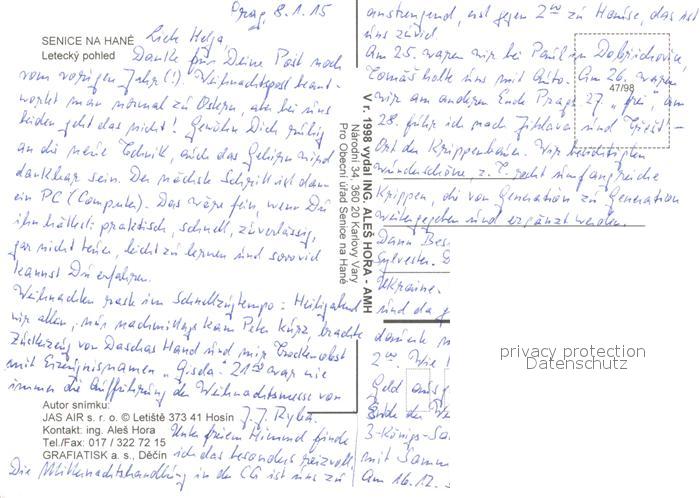 Prag 8.1.15
Liebe Helga,
SENICE NA HANÉ
Letecký pohled
Danke für Deine Post noch
vom vorigen Jahr (!). Weihnachtspost beant-
wortet man normal zu Ostern, aber bei uns
beiden geht das nicht! Gewöhn Dich ruhig
an die neue Technik, auch das Gehirn wird
dankbar sein. Der nächste Schritt ist dann
ein PC (Computer). Das wäre fein, wenn Du
ihn hättest: praktisch, schnell, zuverlässig,
gar nicht teuer, leicht zu lernen und soviel
kannst Du erfahren.
Weihnachten rast im Schnellzugtempo: Heiligabend
wir allen, nur nachmittags kam Peter kurz, brachte
von Daschas Hand und wir Trockenobst
mit "Gisela". 21⁰⁰ war wie
immer die Aufführung der Weihnachtsmesse von
J. J. Ryba.
Autor snímku:
JAS AIR s. r. o. © Letiště 373 41 Hosín
Kontakt: ing. Aleš Hora
Tel./Fax: 017 / 322 72 15
GRAFIATISK a. s., Děčín
Unter freiem Himmel finde
ich das besonders reizvoll.
Die Mitternachtshandlung in der CG ist uns zu
V r. 1998 vydal ING. ALEŠ HORA - AMH
Národní 34, 360 20 Karlovy Vary
Pro Obecní úřad Senice na Hané
anstrengend, erst gegen 2⁰⁰ zu Hause, das ist
uns zuviel.
Am 25. waren wir bei Paul in Dobřichovice,
Tomáš holte uns mit Auto. Am 26. waren
47/98
wir am anderen Ende Prags 27. "frei", am
28. fuhr ich nach Jihlava und Třešť -
Ort der Krippenbauer. Wir besichtigten
wunderschöne z. T. recht umfangreiche
Krippen, die von Generation zu Generation
weitergegeben und ergänzt werden.
Dann Bes
Sylvester.
Ukraine.
und da g
2⁰⁰. Wie
privacy protection
Datenschutz
Geld ausg
Ende der We
3-Königs-Sa
mit Samm
Am 16.12.